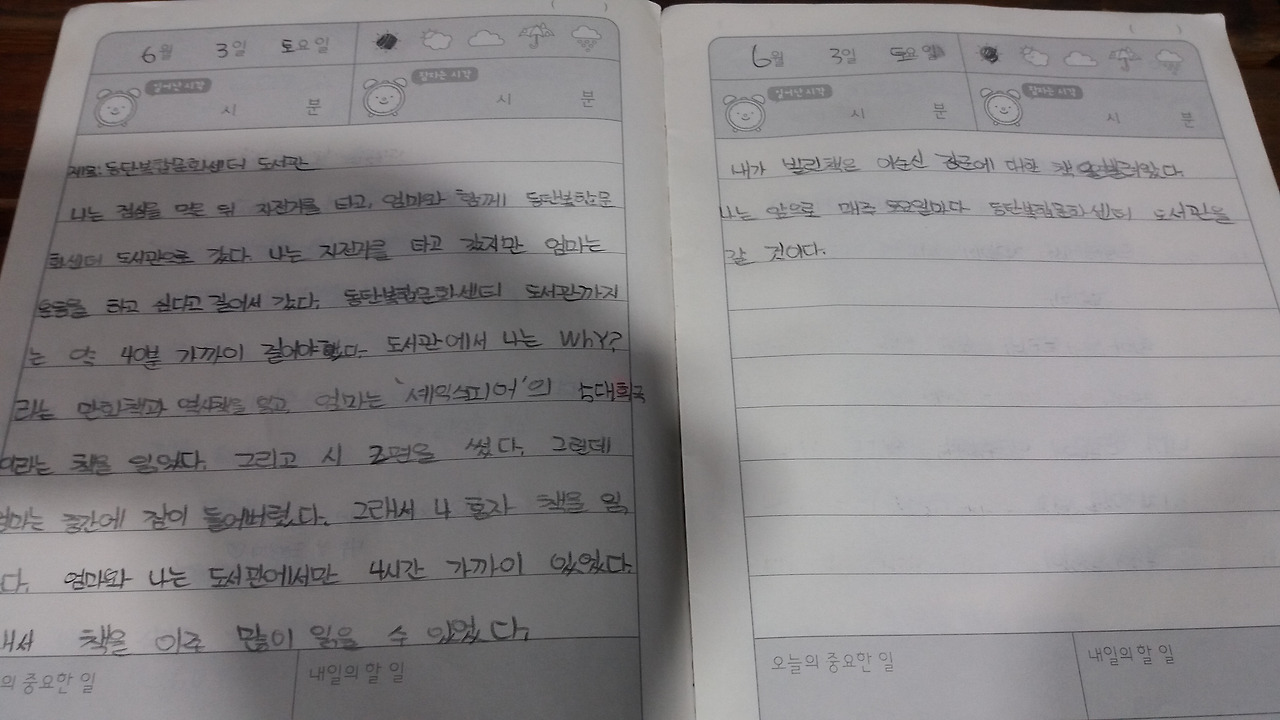 6월 3일 토요일
일어난 시각
시 분
잠자는 시각
시 분
제목: 동탄복합문화센터 도서관
나는 점심을 먹은 뒤 자전거를 타고, 엄마와 함께 동탄복합문
화센터 도서관으로 갔다. 나는 자전거를 타고 갔지만 엄마는
운동을 하고 싶다고 걸어서 갔다. 동탄복합문화센터 도서관까지
는 약 40분 가까이 걸어야했다. 도서관에서 나는 WhY?
라는 만화책과 역사책을 읽고 엄마는 '셰익스피어'의 5대희극
이라는 책을 읽었다. 그리고 시 2편을 썼다. 그런데
엄마는 중간에 잠이 들어버렸다. 그래서 나 혼자 책을 읽
다. 엄마와 나는 도서관에서만 4시간 가까이 있었다.
래서 책을 아주 많이 읽을 수 있었다.
의 중요한 일
내일의 할 일
6월 3일 토요일
일어난 시각
시 분
잠자는 시각
시 분
내가 빌린책은 이순신 장군에 대한 책을빌려왔다.
나는 앞으로 매주 토요일마다 동탄복합문화센터 도서관을
갈 것이다.
오늘의 중요한 일
내일의 할 일